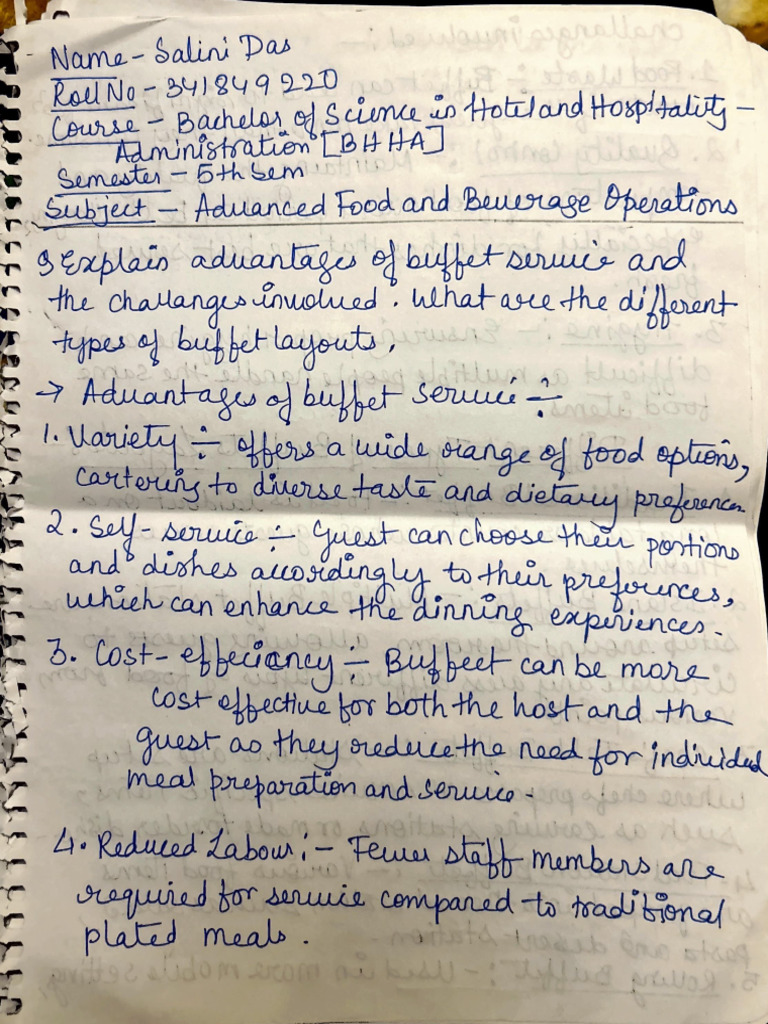 Name - Salini Das
Roll No - 341849220
Course - Bachelor of Science in Hotel and Hospitality -
Administration [BHHA]
Semester - 5th Sem
Subject - Advanced Food and Beverage Operations
Q Explain advantages of buffet service and
the challanges involved. What are the different
types of buffet layouts.
→ Advantages of buffet service ÷
1. Variety ÷ offers a wide range of food options,
cartering to diverse taste and dietary preferences
2. Self-service ÷ Guest can choose their portions
and dishes accordingly to their preferences,
which can enhance the dinning experiences.
3. Cost-effeciancy ÷ Buffeet can be more
cost effective for both the host and the
guest as they reduce the need for individual
meal preparation and service.
4. Reduced Labour :- Fewer staff members are
required for service compared to traditional
plated meals.